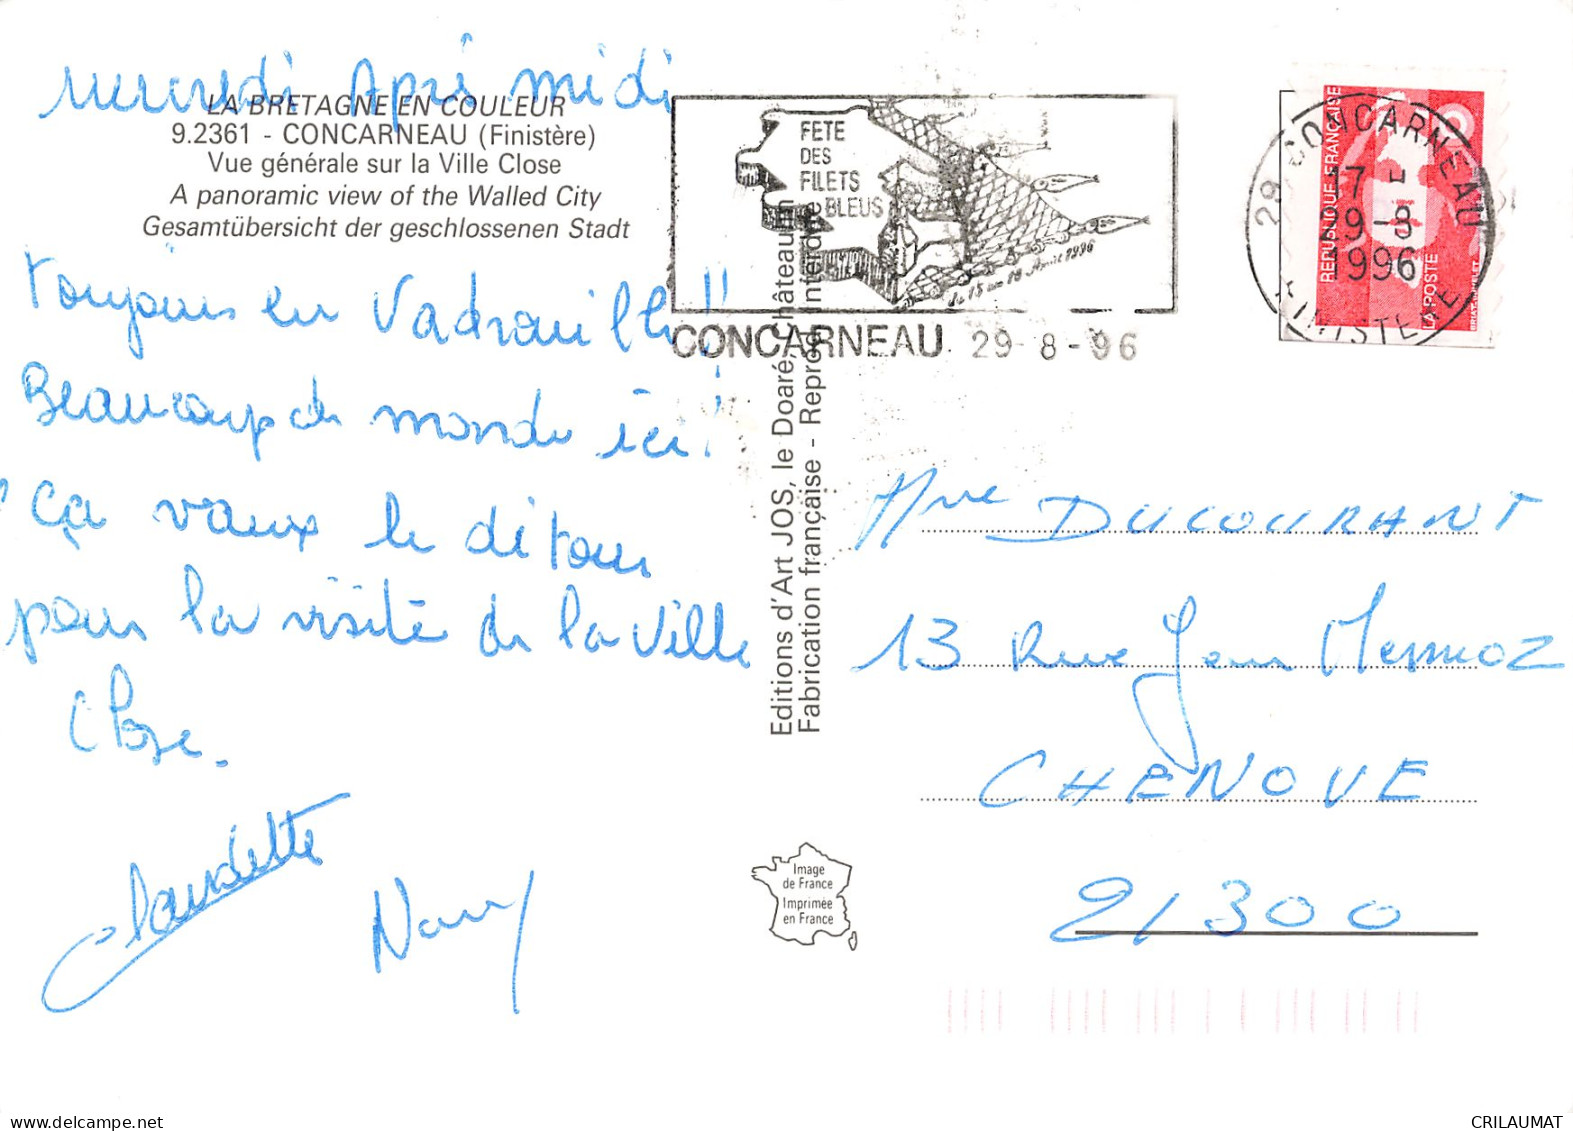 mercredi Après midi
LA BRETAGNE EN COULEUR
9.2361 - CONCARNEAU (Finistère)
Vue générale sur la Ville Close
A panoramic view of the Walled City
Gesamtübersicht der geschlossenen Stadt
Toujours en Vadrouille!!
Beaucoup de monde ici!
ça vaux le détour
pour la visite de la Ville
Close.
Claudette
Nany
FETE
DES
FILETS
BLEUS
du 15 au 18 Août 1996
CONCARNEAU 29-8-96
Editions d'Art JOS, le Doaré, Châteaulin
Fabrication française - Reprod. interdite
29 CONCARNEAU
17 H
29-8
1996
FINISTERE
REPUBLIQUE FRANÇAISE
LA POSTE
Mme DUCOURANT
13 Rue Jean Mermoz
CHENOVE
21300
Image
de France
Imprimée
en France
delcampe.net
CRILAUMAT